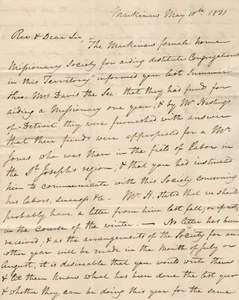 Mackinaw May 10th 1831
Rev. & Dear Sir
The Mackinaw female home
Missionary Society for aiding destitute Congregations
in this Territory informed you last Summer
thro. Mrs Davis the Sec that they had funds for
aiding a Missionary one year, & by Mr Hastings
of Detroit they were furnished with answer
that their funds were appropriated for a Mr
Jones who was then in the field of Labor in
the St Joseph's region, & that you had instructed
him to communicate with this Society concerning
his labors, success &c. Mr H. stated that we should
probably have a letter from him last fall, or at
in the course of the winter — No letter has been
received, & as the arrangements of the Society for an
other year will be made in the Month of July or
August, it is desirable that you would write them
& let them know what has been done the last year
& whether they can be doing this year for the same